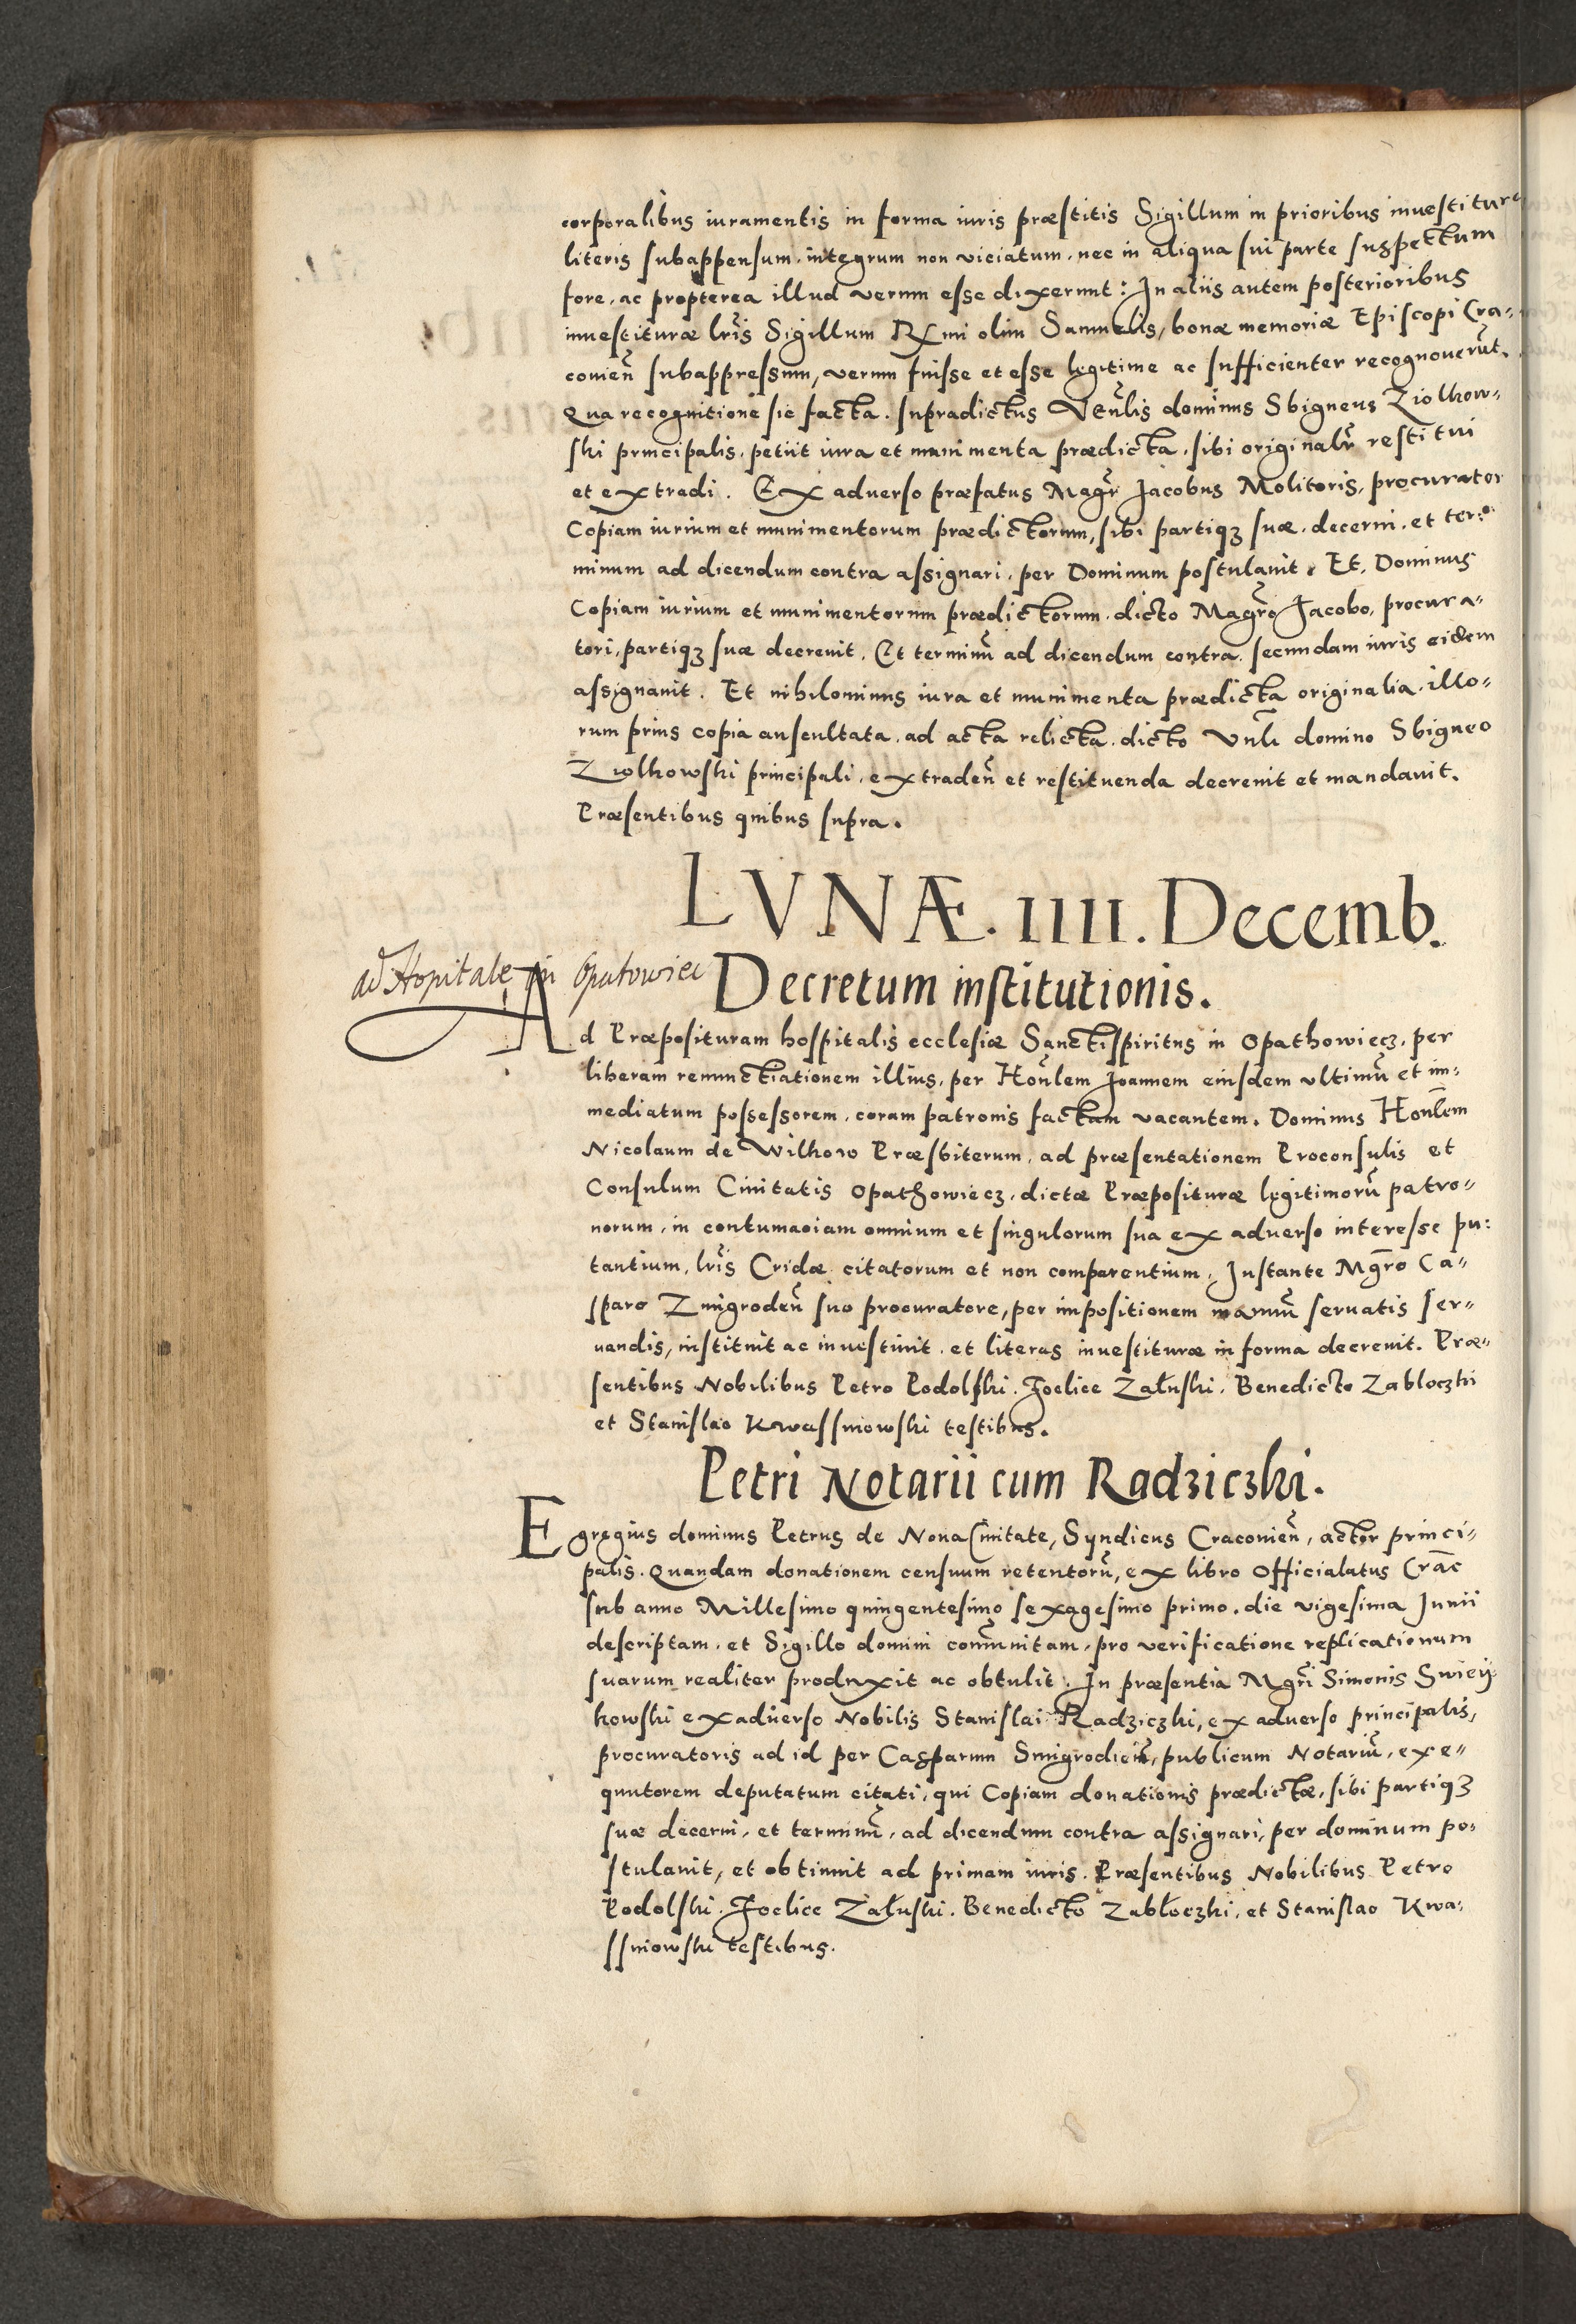 corporalibus iuramentis in forma iuris præstitis Sigillum in prioribus inuestituræ
literis subappensum. integrum non viciatum. nec in aliqua sui parte suspectum
fore. ac propterea illud verum esse dixerunt: In aliis autem posterioribus
inuestituræ lris Sigillum Rxmi olim Samuelis, bonæ memoriæ Episcopi Cra-
couien̄ subappressum, verum fuisse et esse legitime ac sufficienter recognouerūt.
Qua recognitione sic facta. supradictus Veñlis dominus Sbigneus Ziolkow-
ski principalis. petiit iura et munimenta prædicta. sibi originalr̄ restitui
et extradi. Ex aduerso præfatus Magr̄ Jacobus Molitoris, procurator
Copiam iurium et munimentorum prædictorum, sibi partiqꝫ suæ. decerni. et ter-
minum ad dicendum contra assignari. per Dominum postulauit. Et, Dominus
Copiam iurium et munimentorum prædictorum. dicto Magr̄o Jacobo, procura-
tori, partiqꝫ suæ decreuit. Et terminū ad dicendum contra. secundam iuris eidem
assignauit. Et nihilominus iura et munimenta prædicta originalia. illo-
rum prius copia auscultata. ad acta relicta. dicto Vnli domino Sbigneo
Ziolkowski principali. extraden̄ et restituenda decreuit et mandauit.
Præsentibus quibus supra.
LVNÆ. IIII. Decemb.
ad Hopitale in Opatowiec
Decretum institutionis.
Ad Præposituram hospitalis ecclesiæ Sanctispiritus in Opathowiecz. per
liberam renunctiationem illius, per Hoñlem Joannem eiusdem vltimū et im-
mediatum possessorem. coram patronis factam vacantem. Dominus Honlem
Nicolaum de Wilkow Præsbiterum, ad præsentationem Proconsulis et
Consulum Ciuitatis Opathowiecz. dictæ Præposituræ legitimorū patro-
norum. in contumaciam omnium et singulorum sua ex aduerso interesse pu-
tantium. lris Cridæ citatorum et non comparentium. Instante Mgr̄o Ca-
sparo Zmigroden̄ suo procuratore, per impositionem manuū seruatis ser-
uandis, instituit ac inuestiuit. et literas inuestituræ in forma decreuit. Præ-
sentibus Nobilibus Petro Podolski. Foelice Załuski. Benedicto Zabloczki
et Stanislao Kwassniowski testibus.
Petri Notarii cum Radziczki.
Egregius dominus Petrus de Noua Ciuitate, Syndicus Cracouien̄, actor princi-
palis. Quandam donationem censuum retentorū, ex libro Officialatus Crac̄
sub anno Millesimo quingentesimo sexagesimo primo. die vigesima Junii
descriptam. et Sigillo domini com̄unitam. pro verificatione replicationum
suarum realiter produxit ac obtulit. In præsentia Mgr̄i Simonis Swiey-
kowski exaduerso Nobilis Stanislai Radziczki, ex aduerso principalis,
procuratoris ad id per Casparum Smigrodien̄, publicum Notariū, exe-
quutorem deputatum citati, qui Copiam donationis prædictæ, sibi partiqꝫ
suæ decerni. et terminū. ad dicendum contra assignari, per dominum po-
stulauit, et obtinuit ad primam iuris. Præsentibus Nobilibus Petro
Podolski. Foelice Załuski. Benedicto Zabłoczki. et Stanislao Kwa-
ssniowski testibus.